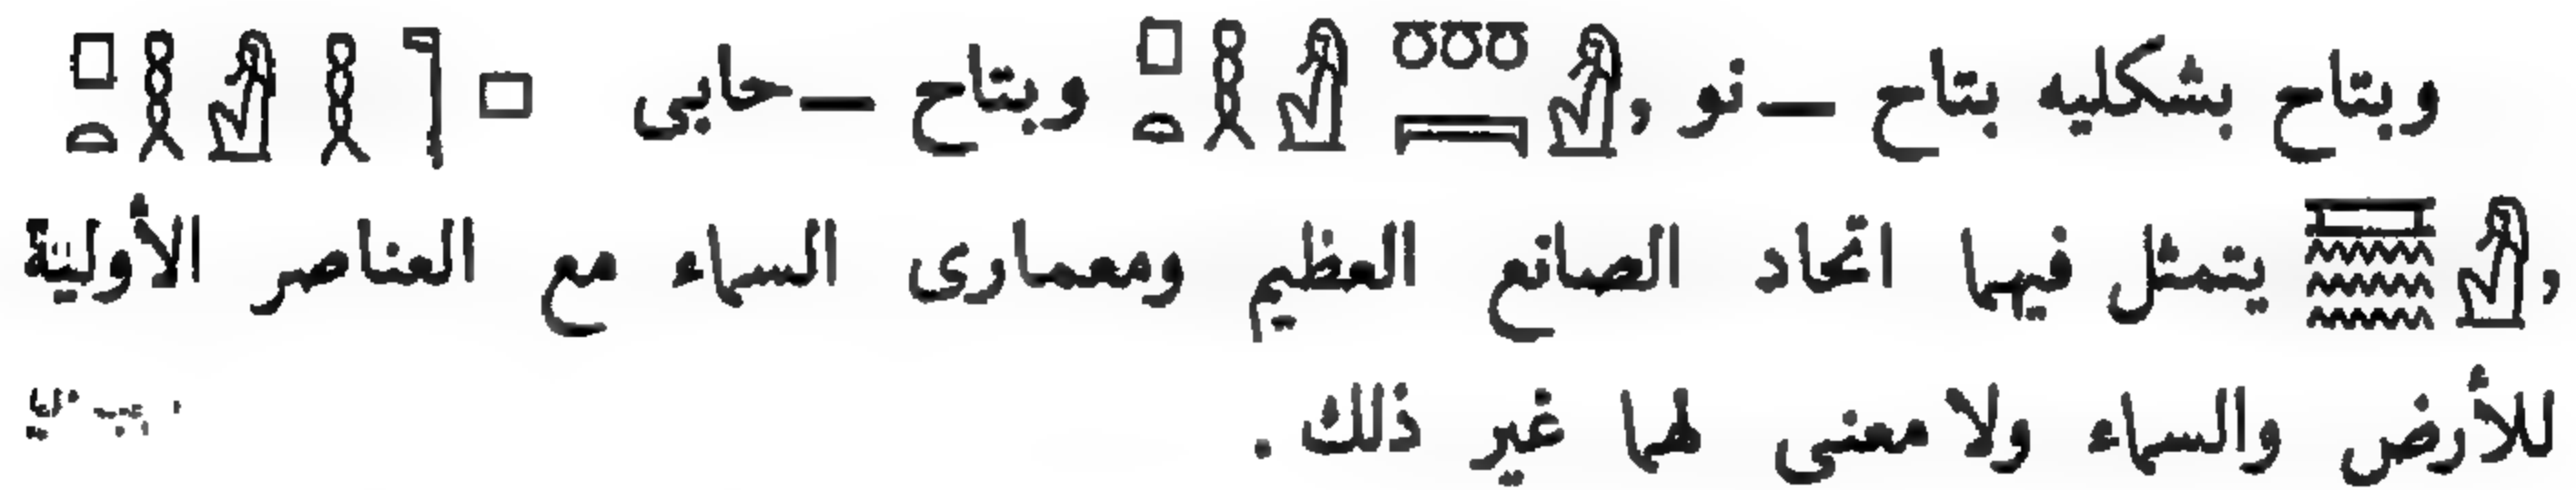 وبتاح بشكليه بتاح — نو , وبتاح — حابى
, يتمثل فيهما اتحاد الصانع العظيم ومعمارى السماء مع العناصر الأولية
للأرض والسماء ولا معنى لهما غير ذلك .